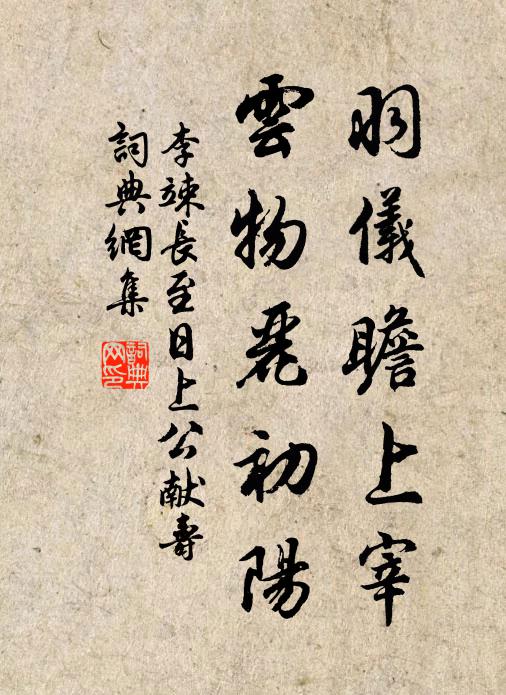 羽儀瞻上宰
雲物麗初陽
李竦長至日上公献壽
詞典網集
詞典
网印